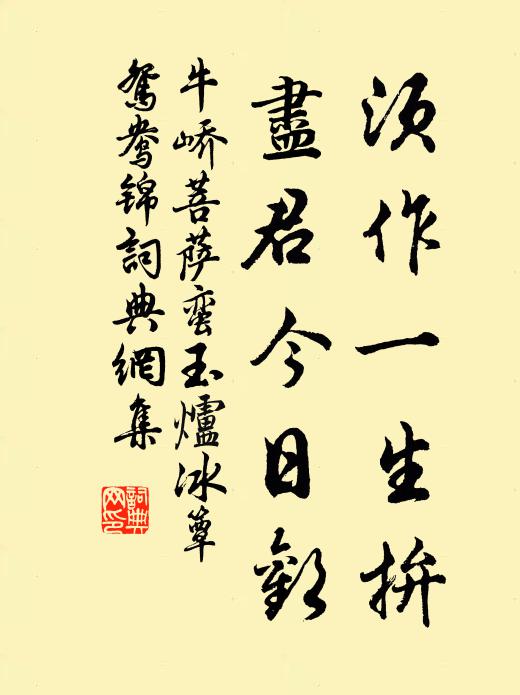 須作一生拚
盡君今日歡
牛嶠菩薩蛮玉爐冰簟
鴛鴦锦詞典網集
詞典网印